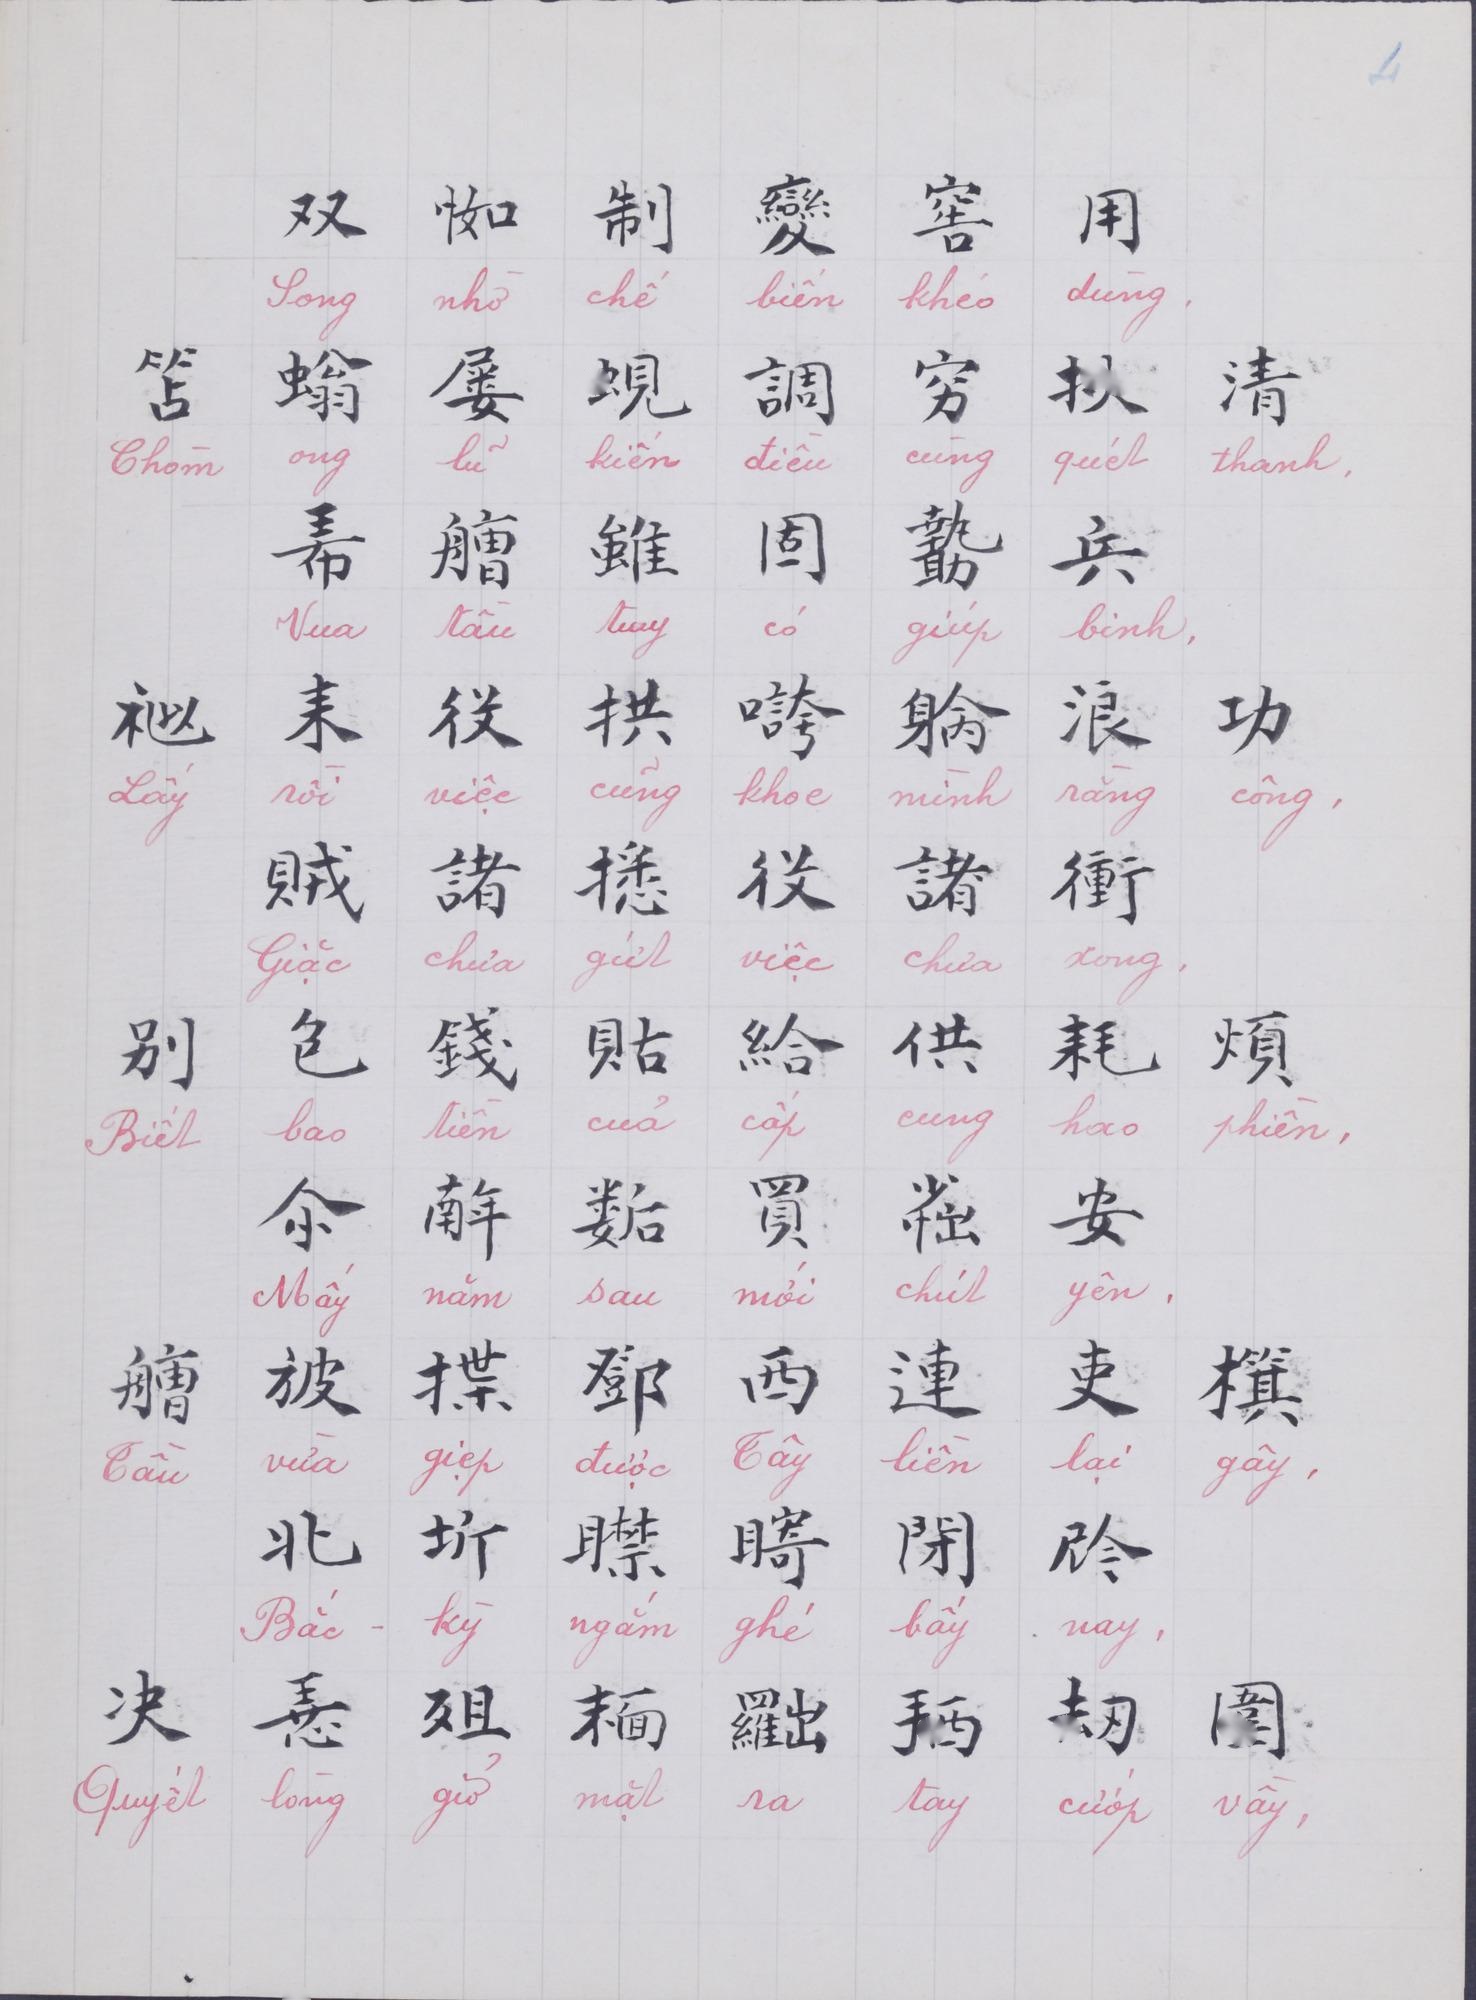 4
双 𢘾 制 變 窖 用
Song nhờ chế biến khéo dùng,
笘 螉 屡 蜆 調 穷 扖 清
Chòm ong lũ kiến điều cùng quét thanh,
𢂜 艚 雖 固 𠢞 兵
Vua tầu tuy có giúp binh,
𥙩 耒 役 拱 誇 躺 浪 功
Lấy rồi việc cũng khoe mình rằng công,
賊 諸 㩢 役 諸 衝
Giặc chưa gứt việc chưa xong,
别 包 錢 貼 給 供 耗 煩
Biết bao tiền của cấp cung hao phiền,
尒 𢆥 𡢐 買 𡮇 安
Mấy năm sau mới chút yên,
艚 㧊 揲 鄧 西 連 吏 㨳
Tầu vừa giẹp được Tây liền lại gây,
北 圻 䁮 𥊘 閉 𫢩
Bắc - kỳ ngắm ghé bấy nay,
决 𢚸 𣦍 𩈘 𦋦 𢬣 刧 圍
Quyết lòng giở mặt ra tay cướp vầy,